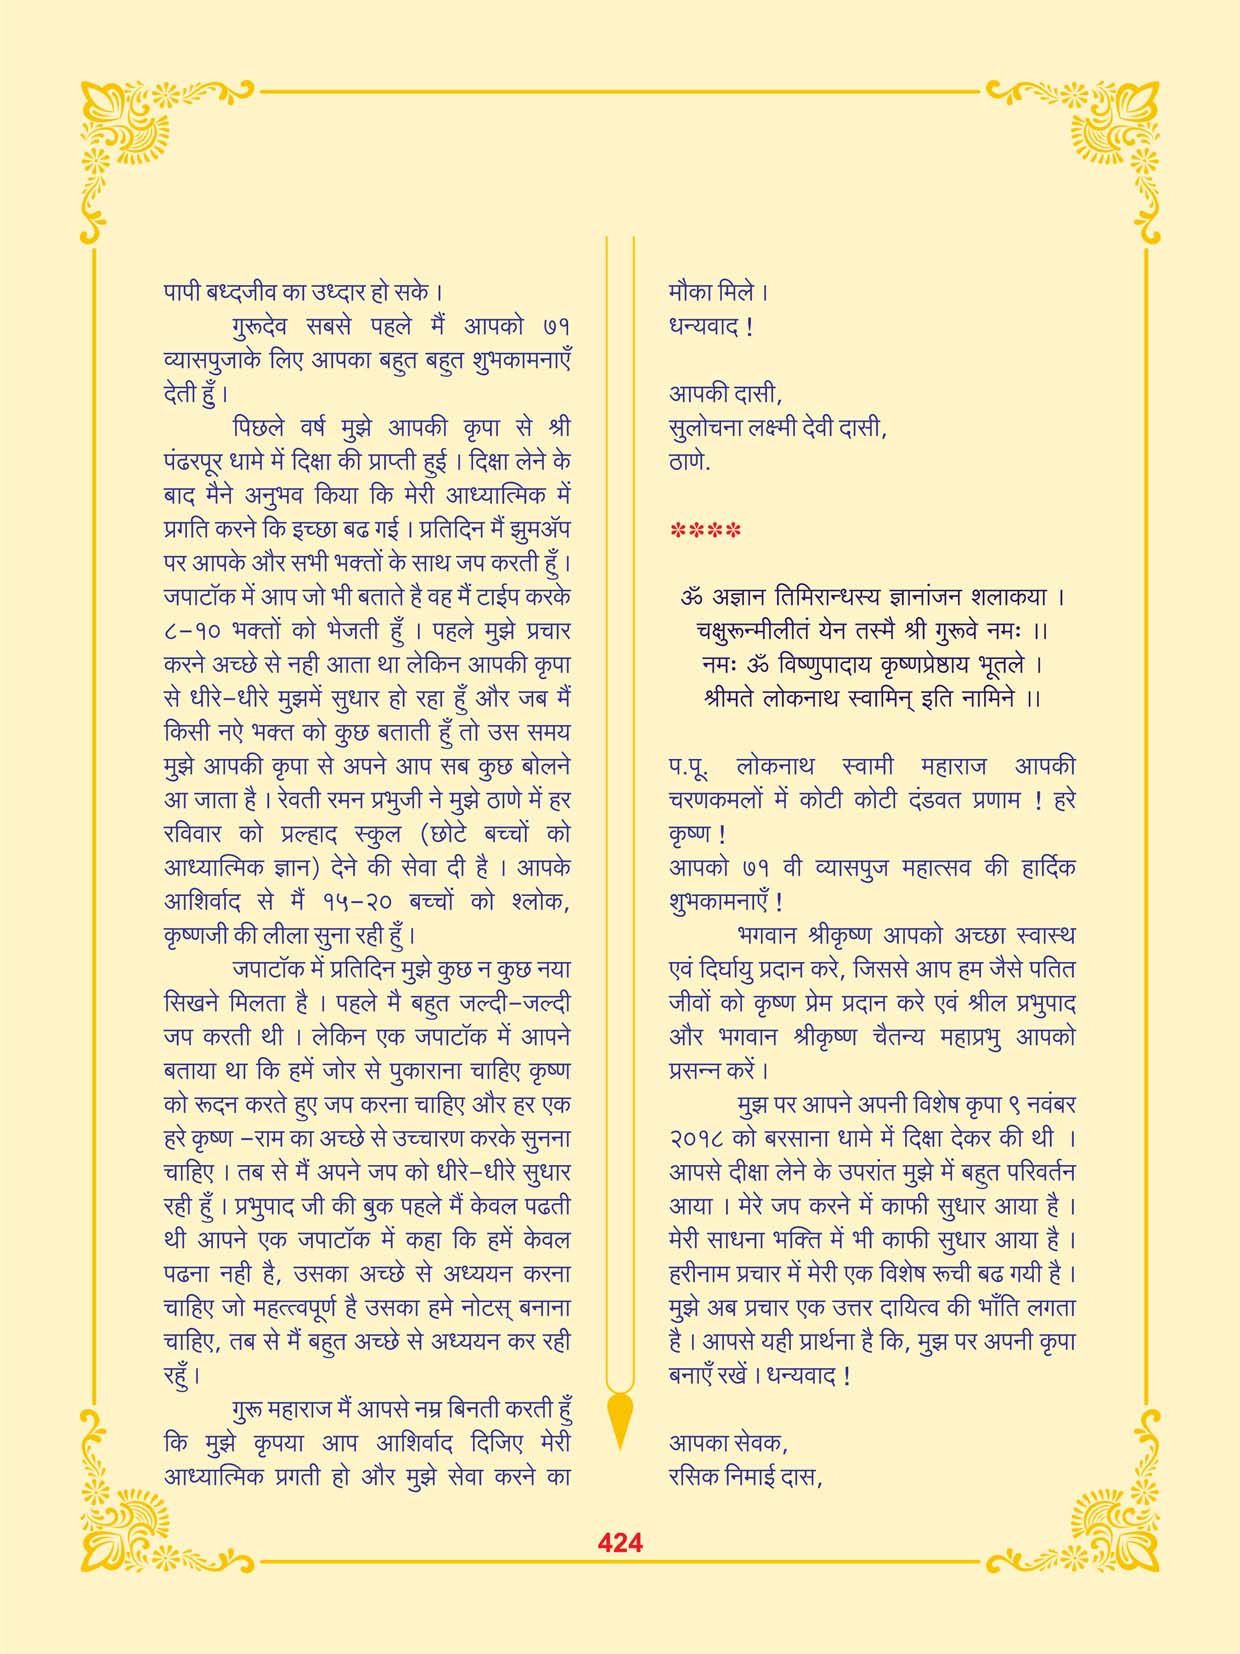 पापी बध्दजीव का उध्दार हो सके ।
गुरूदेव सबसे पहले मैं आपको ७१
व्यासपुजाके लिए आपका बहुत बहुत शुभकामनाएँ
देती हुँ ।
पिछले वर्ष मुझे आपकी कृपा से श्री
पंढरपूर धामे में दिक्षा की प्राप्ती हुई । दिक्षा लेने के
बाद मैने अनुभव किया कि मेरी आध्यात्मिक में
प्रगति करने कि इच्छा बढ गई । प्रतिदिन मैं झुमॲप
पर आपके और सभी भक्तों के साथ जप करती हुँ ।
जपाटॉक में आप जो भी बताते है वह मैं टाईप करके
८-१० भक्तों को भेजती हुँ । पहले मुझे प्रचार
करने अच्छे से नही आता था लेकिन आपकी कृपा
से धीरे-धीरे मुझमें सुधार हो रहा हुँ और जब मैं
किसी नऐ भक्त को कुछ बताती हुँ तो उस समय
मुझे आपकी कृपा से अपने आप सब कुछ बोलने
आ जाता है । रेवती रमन प्रभुजी ने मुझे ठाणे में हर
रविवार को प्रल्हाद स्कुल (छोटे बच्चों को
आध्यात्मिक ज्ञान) देने की सेवा दी है । आपके
आशिर्वाद से मैं १५-२० बच्चों को श्लोक,
कृष्णजी की लीला सुना रही हुँ ।
जपाटॉक में प्रतिदिन मुझे कुछ न कुछ नया
सिखने मिलता है । पहले मै बहुत जल्दी-जल्दी
जप करती थी । लेकिन एक जपाटॉक में आपने
बताया था कि हमें जोर से पुकाराना चाहिए कृष्ण
को रूदन करते हुए जप करना चाहिए और हर एक
हरे कृष्ण -राम का अच्छे से उच्चारण करके सुनना
चाहिए । तब से मैं अपने जप को धीरे-धीरे सुधार
रही हुँ । प्रभुपाद जी की बुक पहले मैं केवल पढती
थी आपने एक जपाटॉक में कहा कि हमें केवल
पढना नही है, उसका अच्छे से अध्ययन करना
चाहिए जो महत्त्वपूर्ण है उसका हमे नोटस् बनाना
चाहिए, तब से मैं बहुत अच्छे से अध्ययन कर रही
रहुँ ।
गुरू महाराज मैं आपसे नम्र बिनती करती हुँ
कि मुझे कृपया आप आशिर्वाद दिजिए मेरी
आध्यात्मिक प्रगती हो और मुझे सेवा करने का
मौका मिले ।
धन्यवाद !
आपकी दासी,
सुलोचना लक्ष्मी देवी दासी,
ठाणे.
****
ॐ अज्ञान तिमिरान्धस्य ज्ञानांजन शलाकया ।
चक्षुरून्मीलीतं येन तस्मै श्री गुरूवे नमः ।।
नमः ॐ विष्णुपादाय कृष्णप्रेष्ठाय भूतले ।
श्रीमते लोकनाथ स्वामिन् इति नामिने ।।
प.पू. लोकनाथ स्वामी महाराज आपकी
चरणकमलों में कोटी कोटी दंडवत प्रणाम ! हरे
कृष्ण !
आपको ७१ वी व्यासपुज महात्सव की हार्दिक
शुभकामनाएँ !
भगवान श्रीकृष्ण आपको अच्छा स्वास्थ
एवं दिर्घायु प्रदान करे, जिससे आप हम जैसे पतित
जीवों को कृष्ण प्रेम प्रदान करे एवं श्रील प्रभुपाद
और भगवान श्रीकृष्ण चैतन्य महाप्रभु आपको
प्रसन्न करें ।
मुझ पर आपने अपनी विशेष कृपा ९ नवंबर
२०१८ को बरसाना धामे में दिक्षा देकर की थी ।
आपसे दीक्षा लेने के उपरांत मुझे में बहुत परिवर्तन
आया । मेरे जप करने में काफी सुधार आया है ।
मेरी साधना भक्ति में भी काफी सुधार आया है ।
हरीनाम प्रचार में मेरी एक विशेष रूची बढ गयी है ।
मुझे अब प्रचार एक उत्तर दायित्व की भाँति लगता
है । आपसे यही प्रार्थना है कि, मुझ पर अपनी कृपा
बनाएँ रखें । धन्यवाद !
आपका सेवक,
रसिक निमाई दास,
424